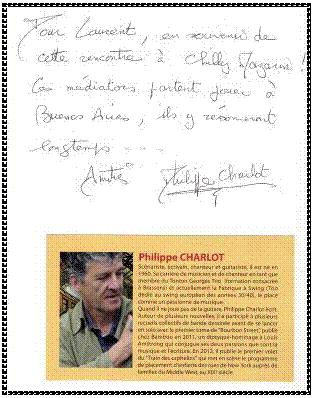 Pour Laurent, en souvenir de
cette rencontre à Chilly Mazarin !
Ces médiators partent jouer à
Buenos Aires, ils y résonneront
longtemps ---
Amitiés Philippe Charlot
Philippe CHARLOT
Scénariste, écrivain, chanteur et guitariste, il est né en
1960. Sa carrière de musicien et de chanteur en tant que
membre du Tonton Georges Trio (formation consacrée
à Brassens) et actuellement la Fabrique à Swing (Trio
dédié au swing européen des années 30/40), le place
comme un passionné de musique.
Quand il ne joue pas de la guitare, Philippe Charlot écrit.
Auteur de plusieurs nouvelles, il a participé à plusieurs
recueils collectifs de bande dessinée avant de se lancer
en solo avec le premier tome de "Bourbon Street", publié
chez Bamboo en 2011, un diptyque-hommage à Louis
Armstrong qui conjugue ses deux passions que sont la
musique et l'écriture. En 2012, il publie le premier volet
du "Train des orphelins" qui met en scène le programme
de placement d'enfants des rues de New York auprès de
familles du Middle West, au